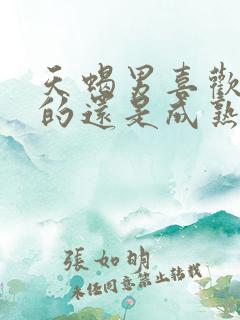 天蝎男喜歡
的還是成熟
張如明
未经同意禁止转载